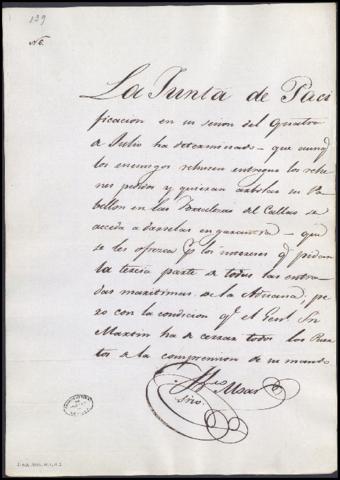 139
Nº
La Junta de Paci
ficacion en su sesion del Quatro
de Julio ha determinado - que aunqᵉ
los enemigos rehusen entregar los rehe
nes pedidos y quieran arbolar su Pa
bellon en las Fortalezas del Callao se
acceda a darselas en garantia - que
se les ofresca pʳ los intereses qᵉ pidan
la tercia parte de todas las entra
das maritimas de la Aduana; pe
ro con la condicion qᵉ el Genl Sn
Martin ha de cerrar todos los Puer
tos de la comprension de su mando